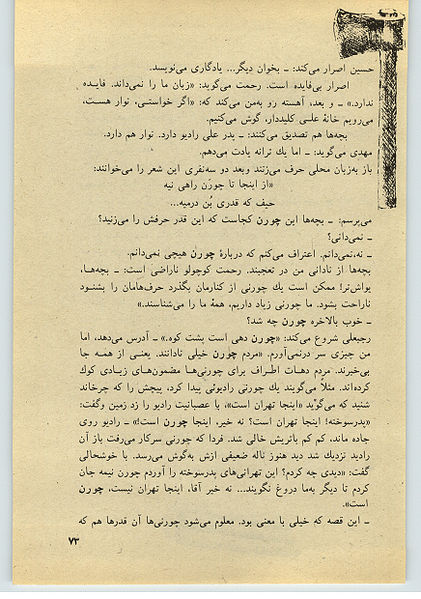 حسین اصرار می‌کند: ـ بخوان دیگر... یادگاری می‌نویسد.
اصرار بی‌فایده است. رحمت می‌گوید: «زبان ما را نمی‌داند. فایـده
ندارد.» ـ و بعد، آهسته رو به‌من می‌کند که: «اگر خواستـی، نوار هسـت،
می‌رویم خانهٔ علـی کلیددار، گوش می‌کنیم.
بچه‌ها هم تصدیق می‌کنند: ـ پدر علی رادیو دارد. نوار هم دارد.
مهدی می‌گوید: ـ اما یك ترانه یادت می‌دهم.
باز به‌زبان محلی حرف می‌زنند وبعد دو سه‌نفری این شعر را می‌خوانند:
«از اینجا تا چورزن راهی نیه
حیف که قدری بُن درمیه...
می‌پرسم: ـ بچه‌ها این چورن کجاست که این قدر حرفش را می‌زنید؟
ـ نمی‌دانی؟
ـ نه،نمی‌دانم. اعتراف می‌کنم که دربارهٔ چورن هیچی نمی‌دانم.
بچه‌ها از نادانی من در تعجبند. رحمت کوچولو ناراضی است: ـ بچه‌هـا،
یواش‌تر! ممکن است یك چورنی از کنارمان بگذرد حرف‌هامان را بشنـود
ناراحت بشود. ما چورنی زیاد داریم، همهٔ ما را می‌شناسند.»
ـ خوب بالاخره چورن چه شد؟
رجبعلی شروع می‌کند: «چورن دهی است پشت کوه.» ـ آدرس می‌دهد، اما
من چیزی سر درنمی‌آورم. «مردم چورن خیلی نادانند. یعنـی از همـه جا
بی‌خبرند. مردم دهـات اطـراف برای چورنی‌هـا مضمون‌هـای زیـادی کوك
کرده‌اند. مثلاً می‌گویند یك چورنی رادیوئی پیدا کرد، پیچش را که چرخاند
شنید که می‌گوید «اینجا تهران است»، با عصبانیت رادیو را زد زمین وگفت:
«پدرسوخته! اینجا تهران است؟ نه خیر، اینجا چورن است!» ـ رادیو روی
جاده ماند، کم کم باتریش خالی شد. فردا که چورنی سرکار می‌رفت باز آن
رادیو نزدیك شد دید هنوز ناله ضعیفی ازش به‌گوش می‌رسد. با خوشحالی
گفت: «دیدی چه کردم؟ این تهرانی‌های پدرسوخته را آوردم چورن نیمه جان
کردم تا دیگر به‌ما دروغ نگویند... نه خیر آقا، اینجا تهران نیست، چورن
است».
ـ این قصه که خیلی با معنی بود. معلوم می‌شود چورنی‌ها آن قدرها هم که
۷۳